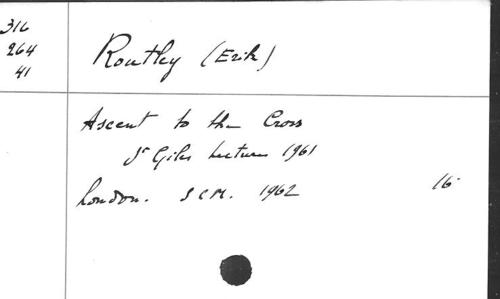 316
264
41
Routley (Erik)
Ascent to the Cross
St Giles Lectures 1961
London. SCM. 1962 16